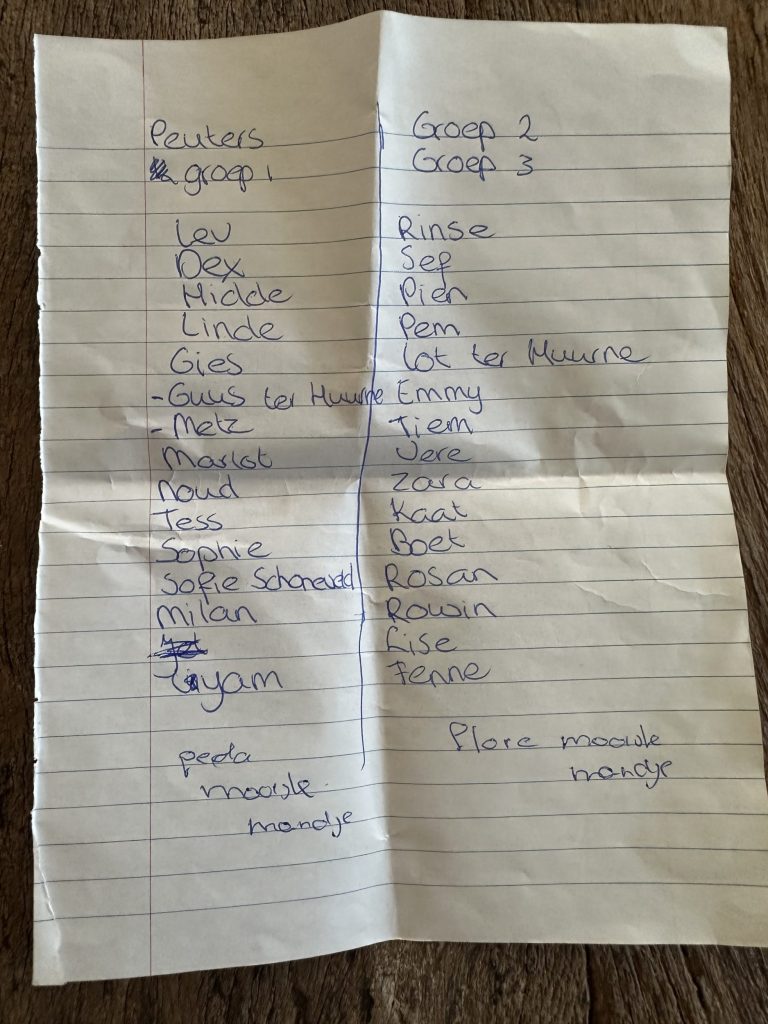 Peuters
groep 1
Lev
Dex
Hidde
Linde
Gies
- Guus ter Huurne
- Metz
Marlot
Noud
Tess
Sophie
Sofie Schoneveld
Milan
yam
peda
mooiste
mandje
Groep 2
Groep 3
Rinse
Sef
Pien
Pem
Lot ter Huurne
Emmy
Tiem
Vere
Zara
Kaat
Boet
Rosan
Rowin
Lise
Fenne
mooiste
mandje